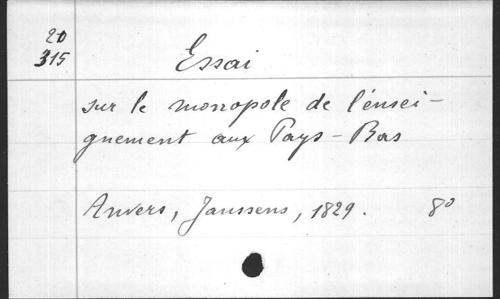 20
315
Essai
sur le monopole de l'ensei-
gnement aux Pays-Bas
Anvers, Janssens, 1829. 8°